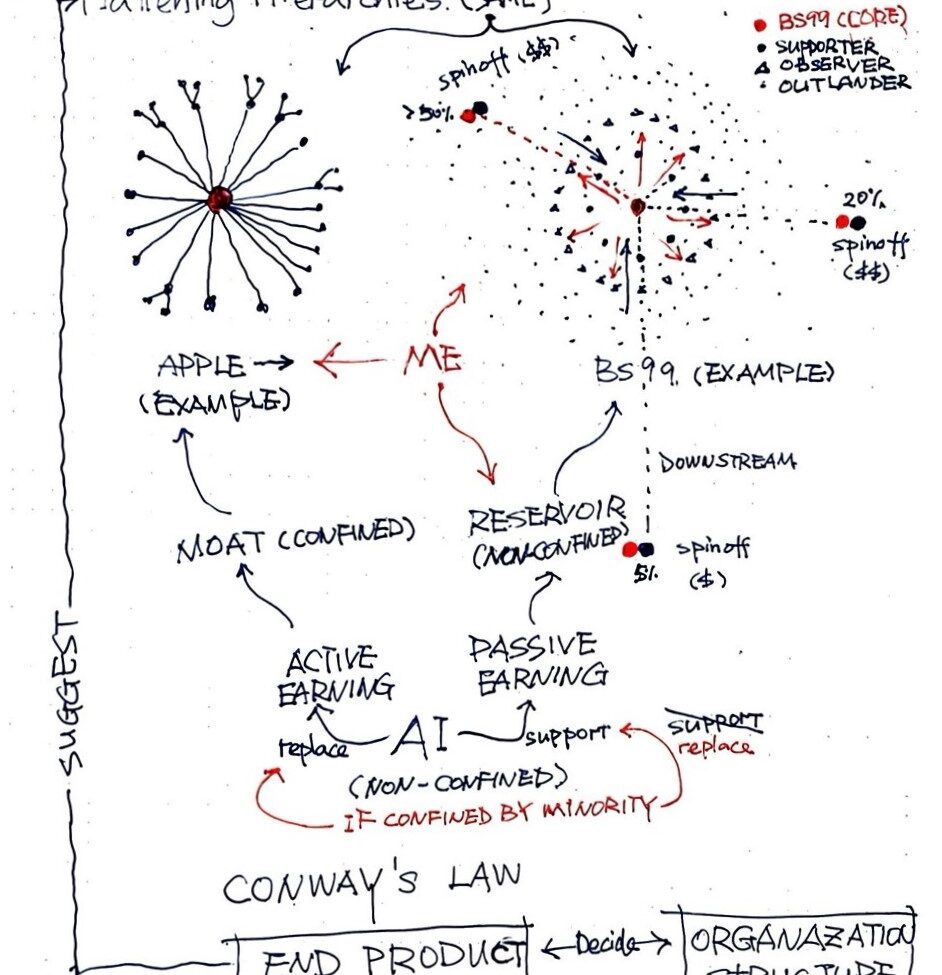 BS99 (CORE)
SUPPORTER
OBSERVER
OUTLANDER
spinoff ($$)
>50%
20%
spinoff
($$)
APPLE →
(EXAMPLE)
← ME
BS99. (EXAMPLE)
DOWNSTREAM
MOAT (CONFINED)
RESERVOIR
(NON-CONFINED)
5%
spinoff
($)
ACTIVE
EARNING
PASSIVE
EARNING
replace
AI
support
SUPPORT
replace
(NON-CONFINED)
IF CONFINED BY MINORITY
SUGGEST
CONWAY'S LAW
END PRODUCT
←Decide→
ORGANAZATION